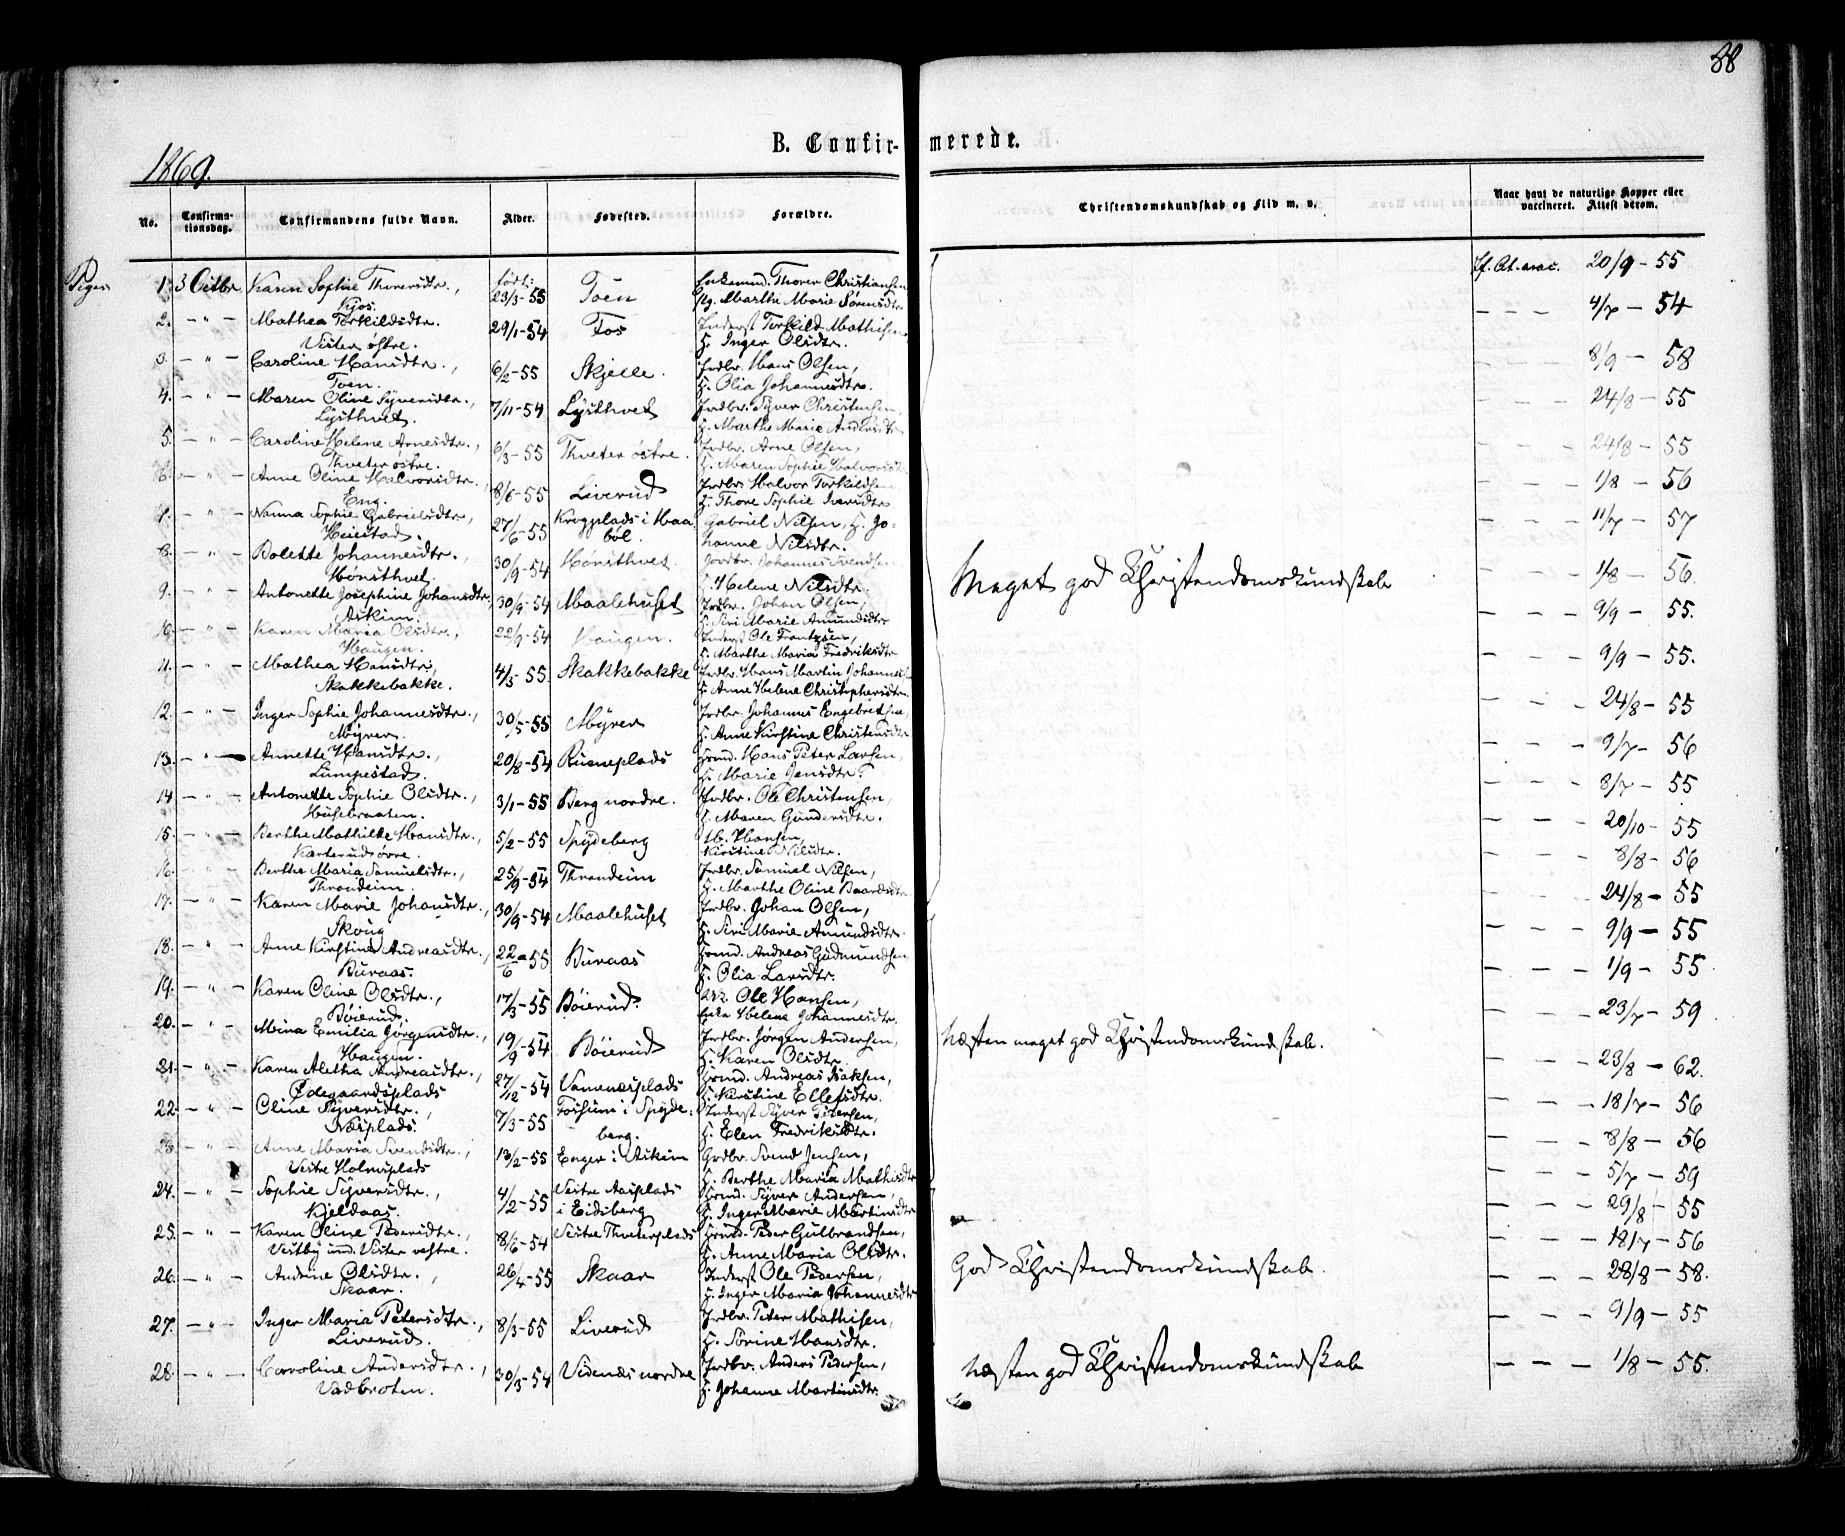 38
B. Confirmerede.
1869.
No.
Confirmationsdag.
Confirmandens fulde Navn.
Alder.
Fødested.
Forældre.
Christendomskundskab og Flid m. v.
Naar havt de naturlige Kopper eller vaccineret. Attest derom.
Piger
1. 3 Octbr. Karen Sophie Thoresdtr., Kjos. født: 23/3-55 Toen Thorer Christiansen Marthe Marie Sørensdtr 20/9-55
2. - " - Mathea Torkildsdtr. Vister østre. 29/1-54 Fos Inderst Torkild Mathisen H. Inger Olsdtr. - - - 4/7-54
3. - " - Caroline Hansdtr., Toen. 6/2-55 Skjelle. Jrdbr. Hans Olsen, H. Olia Johannesdtr. - - - 8/9-58
4. - " - Maren Oline Syversdtr., Lysthvet. 7/11-54 Lysthvet Jrdbr. Syver Christensen, H. Marthe Marie Andersdtr - - - 24/8-55
5. - " - Caroline Helene Arnesdtr., Thveter østre. 6/3-55 Thveter østre. Jrdbr. Arne Olsen, H. Maren Sophie Halvorsdtr - - - 24/8-55
6. - " - Anne Oline Halvorsdtr., Eng. 8/6-55 Liverud Jrdbr. Halvor Torkildsen H. Thore Sophie Iversdtr - - - 1/8-56
7. - " - Nanna Sophie Gabrielsdtr, Heiestad. 27/6-55 Krogplads i Haabøl. Gabriel Nilsen, H. Johanne Nilsdtr. - - - 11/7-57
8. - " - Bolette Johannesdtr., Hønsthvet. 30/9-54 Hønsthvet. Johannes Svendsen H. Helene Nilsdtr. - - - 1/8-56.
Meget god Christendomskundskab
9. - " - Antonette Josephine Johansdtr, Askim. 30/9-54 Maalehuset Jrdbr. Johan Olsen, H. Siri Marie Amundsdtr - - - 9/9-55.
10. - " - Karen Maria Olsdtr., Haugen. 22/9-54 Haugen. Inderst Ole Frantzsen, H. Marthe Maria Fredriksdtr - - - 9/9-55.
11. - " - Mathea Hansdtr, Skakkebakke. 4/5-55. Skakkebakke Jrdbr. Hans Martin Johannes H. Anne Helene Christophersdtr. - - - 24/8-55
12. - " - Inger Sophie Johannesdtr., Myrer. 30/5-55 Myrer Jrdbr. Johannes Engebretsen, H. Anne Kirstine Christensdtr - - - 9/7-56
13. - " - Annette Hansdtr., Lumpestad. 20/8-54 Rusneplads Hans Peter Larsen, H. Marie Jensdtr. - - - 8/7-55
14 - " - Antonette Sophie Olsdtr., Husebraaten. 3/1-55 Berg nordre. Jrdbr. Ole Christensen, H. Maren Gundersdtr. - - - 20/10-55
15. - " - Berthe Mathilde Hansdtr., Karterud øvre. 5/2-55 Spydeberg Hansen, Kirstine Nilsdtr. - - - 8/8-56
16. - " - Berthe Maria Samuelsdtr., Throndeim. 25/9-54 Throndeim Jrdbr. Samuel Nilsen, H. Marthe Oline Baardsdtr. - - - 24/8-55
17. - " - Karen Marie Johansdtr., Skoug 30/9-54 Maalehuset Jrdbr. Johan Olsen, H. Siri Marie Amundsdtr. - - - 9/9-55
18. - " - Anne Kirstine Andreasdtr., Buraas. 22/6-55 Buraas Andreas Gudmundsen H. Olia Larsdtr. - - - 1/9-55
19. - " - Karen Oline Olsdtr., Bøierud. 17/3-55 Bøierud. Ole Hansen, Helene Johannesdtr. - - - 23/7-59
20. - " - Mina Emilia Jørgensdtr., Haugen. 19/9-54 Bøierud Jrdbr. Jørgen Andersen, H. Karen Olsdtr. - - - 23/8-62.
Næsten meget god Christendomskundskab.
21. - " - Karen Aletha Andreasdtr., Ødegaardsplads 27/12-54 Vamenæsplads Andreas Isaksen, H. Kirstine Ellefsdtr. - - - 18/7-56
22. - " - Oline Syversdtr., Næsplads. 7/3-55 Fossum i Spydeberg. Inderst Syver Petersen, H. Elen Fredriksdtr. - - - 8/8-56
23. - " - Anne Maria Svendsdtr., Vestre Holmsplads 13/2-55 Enger i Askim Svend Jensen, H. Berthe Maria Mathisdtr - - - 5/7-59
24. - " - Sophie Syversdtr., Kjeldaas. 4/2-55 Vestre Aasplads i Eidsberg Syver Andersen, H. Inger Marie Martinsdtr - - - 29/8-55
25. - " - Karen Oline Pedersdtr., Vestby und. Vister vestre. 8/6-54 Vestre Thveterplads Peder Gulbrandsen, H. Anne Maria Olsdtr. - - - 18/7-56
26. - " - Andrine Olsdtr., Skaar. 26/4-55 Skaar Inderst Ole Pedersen, H. Inger Maria Johannesdtr - - - 28/8-58.
God Christendomskundskab.
27. - " - Inger Maria Petersdtr., Liverud. 8/3-55 Liverud Jrdbr. Peter Mathisen, H. Sørine Hansdtr. - - - 9/9-55
28. - " - Caroline Andersdtr., Vadbroten. 30/3-54 Videnæs nordre Jrdbr. Anders Pedersen, H. Johanne Martinsdtr. - - - 1/8-55.
Næsten god Christendomskundskab